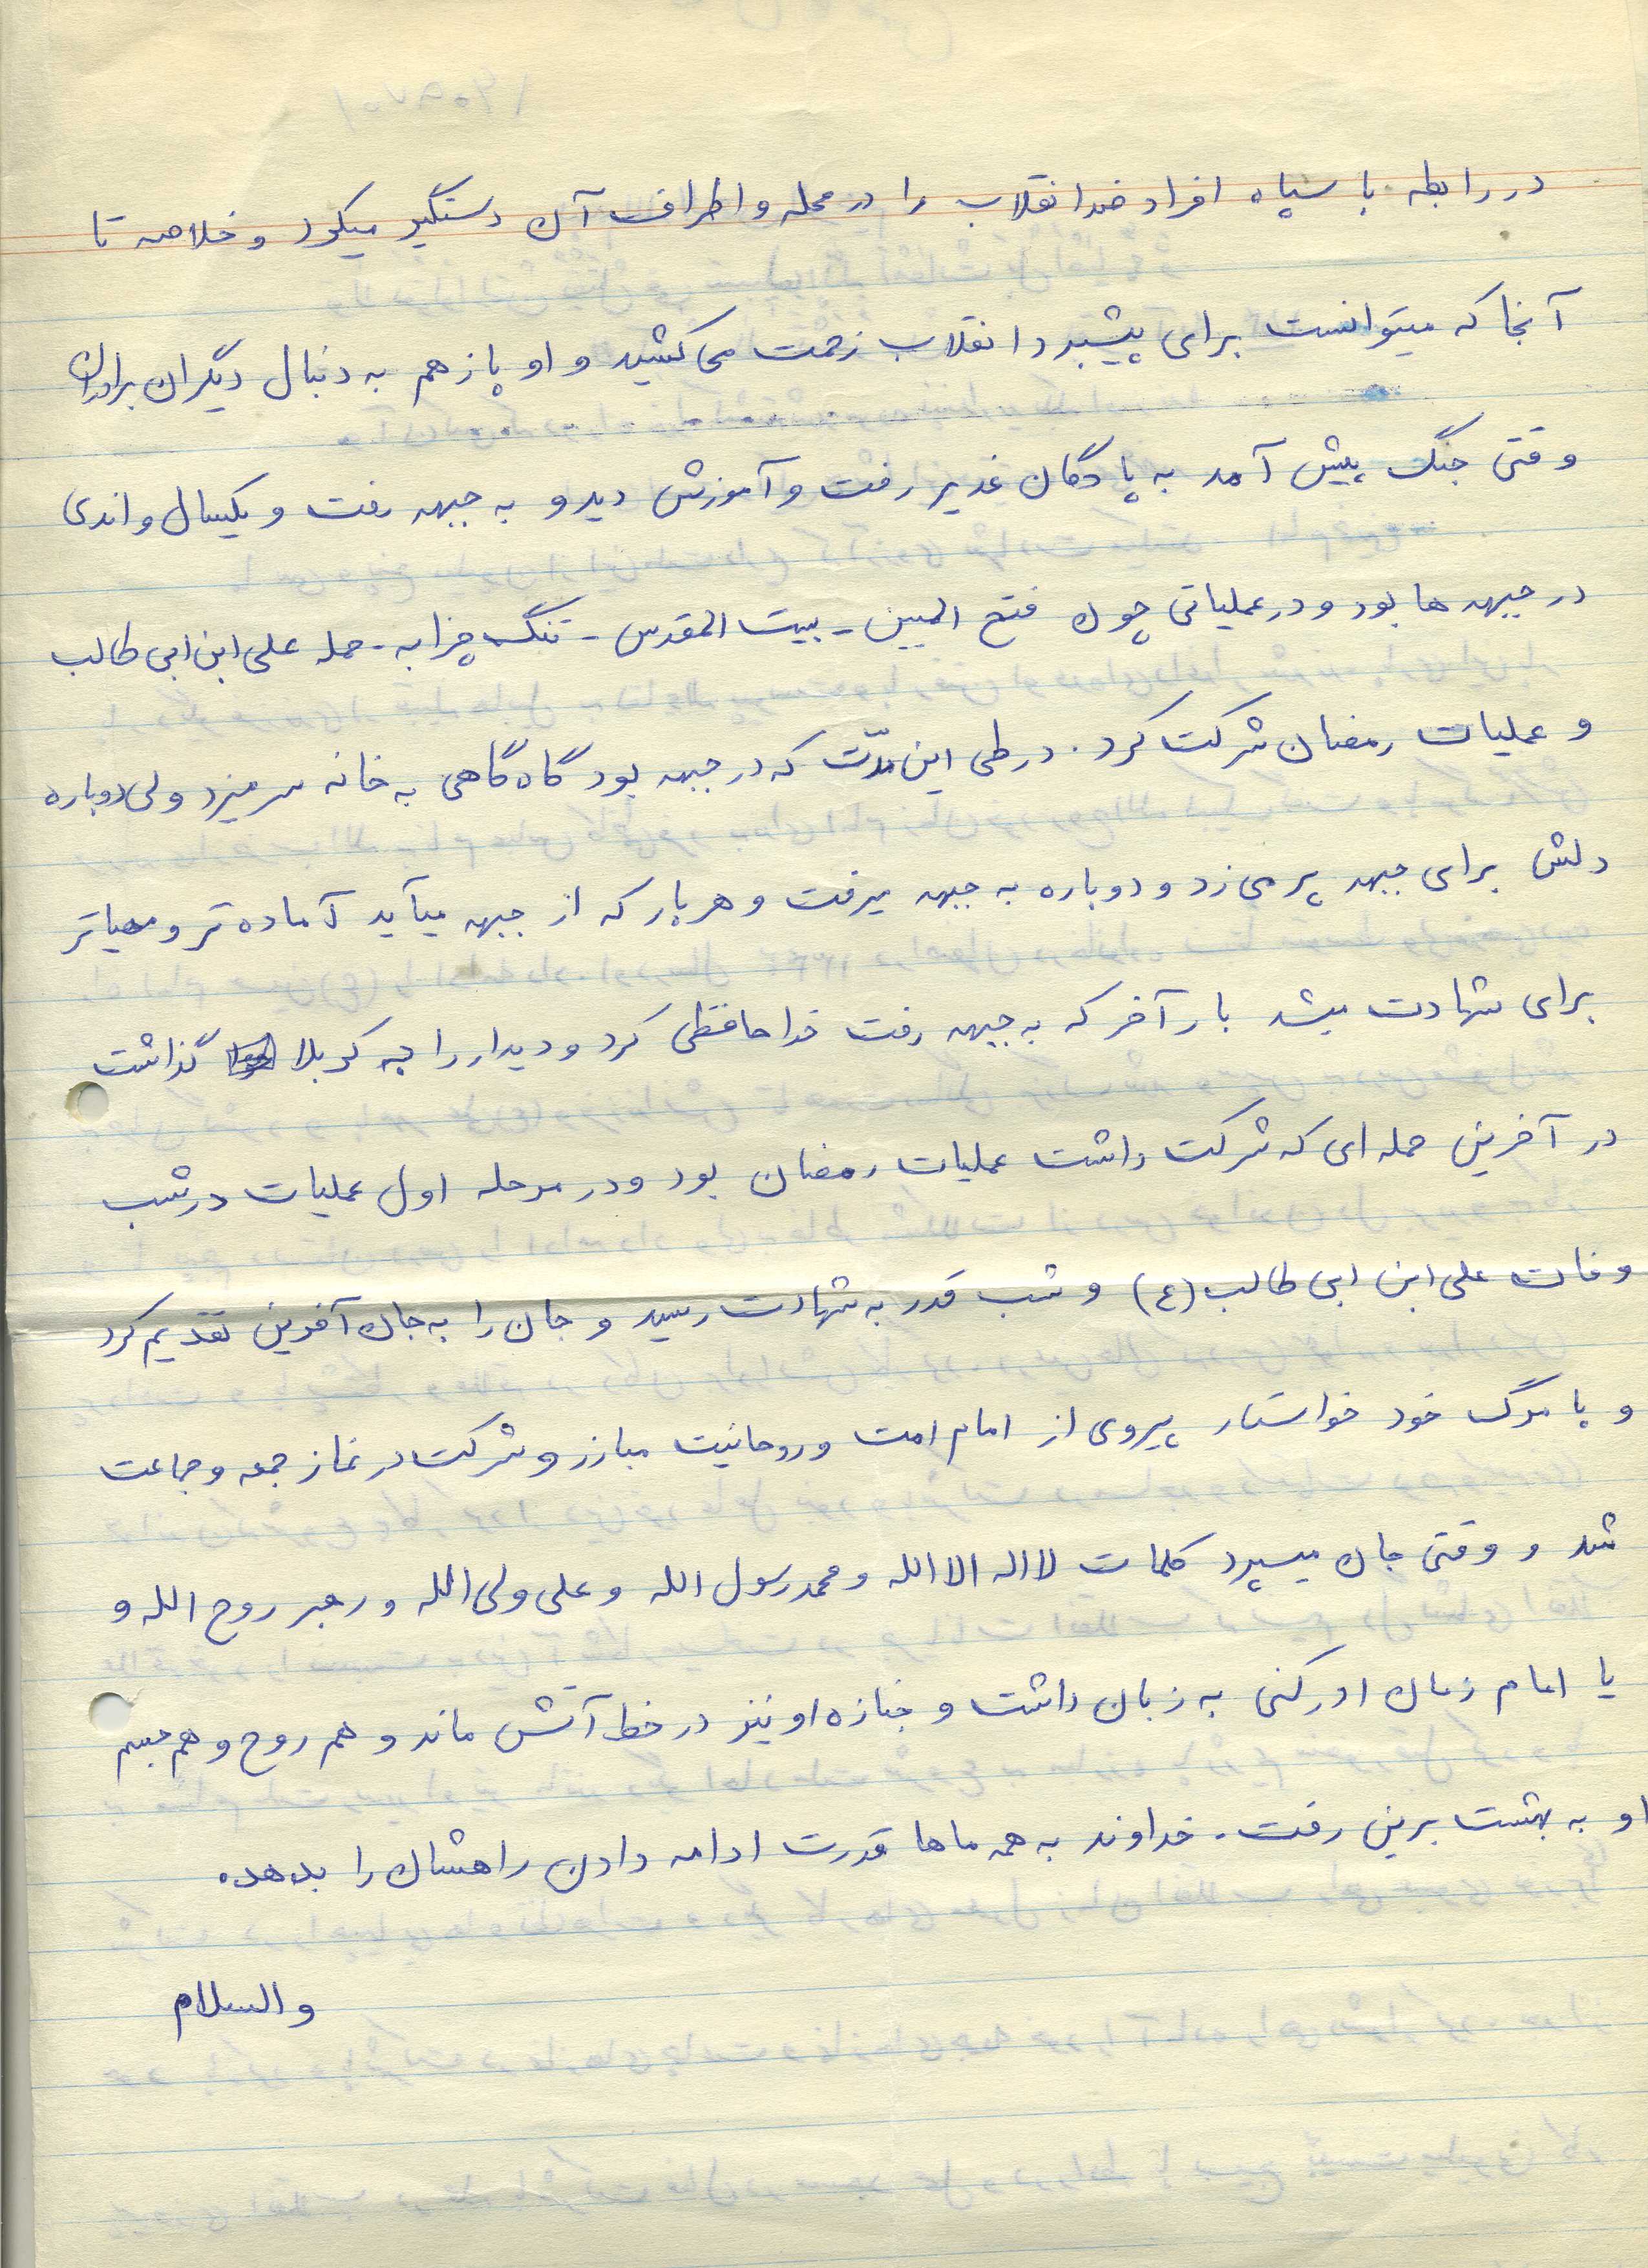 در رابطه با سپاه افراد ضد انقلاب را در محله و اطراف آن دستگیر میکرد و خلاصه تا
آنجا که میتوانست برای پیشبرد انقلاب زحمت می کشید و او باز هم به دنبال دیگران برادران
وقتی جنگ پیش آمد به پادگان غدیر رفت و آموزش دید و به جبهه رفت و یکسال و اندی
در جبهه ها بود و در عملیاتی چون فتح المبین - بیت المقدس - تنگ چزابه - حمله علی ابن ابی طالب
و عملیات رمضان شرکت کرد . در طی این مدّت که در جبهه بود گاه گاهی به خانه سر میزد ولی دوباره
دلش برای جبهه پر می زد و دوباره به جبهه میرفت و هر بار که از جبهه میآید آماده تر و مهیاتر
برای شهادت میشد بار آخر که به جبهه رفت خداحافظی کرد و دیدار را به کربلا گذاشت
در آخرین حمله ای که شرکت داشت عملیات رمضان بود و در مرحله اول عملیات در شب
وفات علی ابن ابی طالب (ع) و شب قدر به شهادت رسید و جان را به جان آفرین تقدیم کرد
و با مرگ خود خواستار پیروی از امام امت و روحانیت مبارز و شرکت در نماز جمعه و جماعت
شد و وقتی جان میسپرد کلمات لا اله الا الله و محمد رسول الله و علی ولی الله و رهبر روح الله و
یا امام زمان ادرکنی به زبان داشت و جنازه او نیز در خط آتش ماند و هم روح و هم جسم
او به بهشت برین رفت . خداوند به همه ماها قدرت ادامه دادن راهشان را بدهد .
والسلام